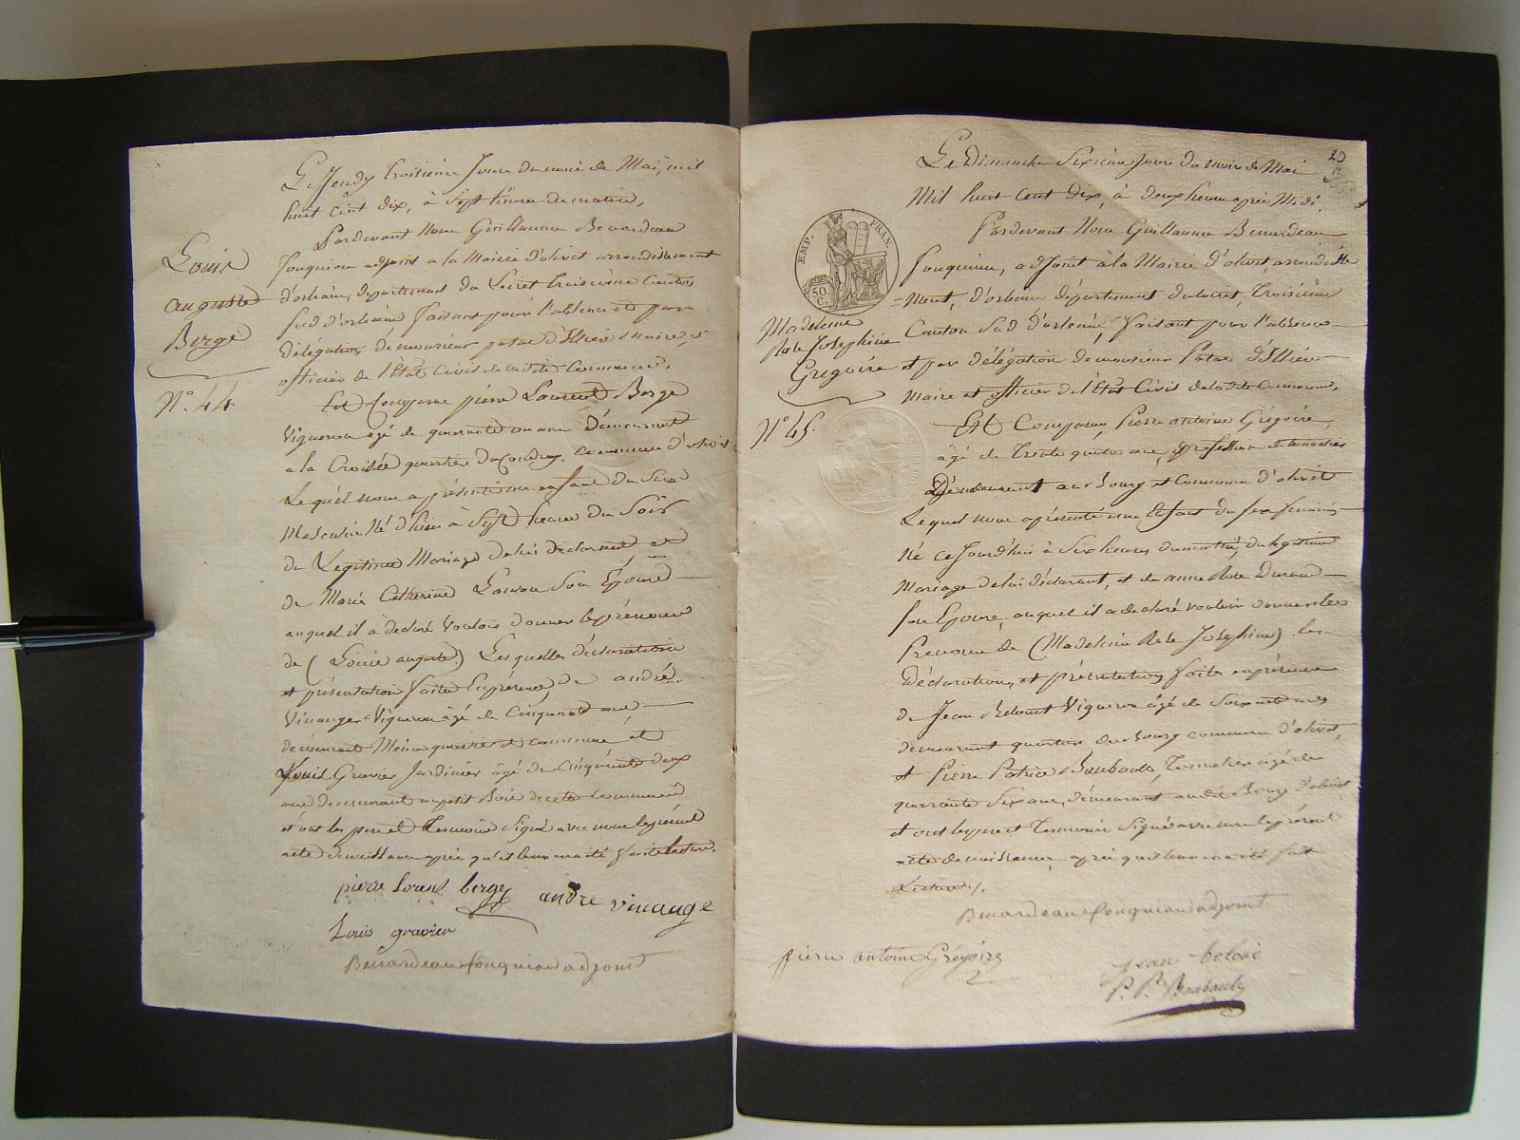 Le Jeudy troisième Jour du mois de Mai, mil
huit cent dix, à Sept heures du matin,
Pardevant Nous Guillaume Benardeau
fouqueau adjoint a la Mairie d'olivet arrondissement
d'orléans, département du Loiret troisième Canton
Sud d'orléans faisant pour l'absence et par
délégation de monsieur patas d'Illiers maire, et
officier de l'Etat Civil de ladite Commune.
Est Comparu pierre Laurent Berge
Vigneron agé de quarante un ans Demeurant
a la Croisée quartier du Coudray, commune d'olivet
Lequel nous a présenté un enfant du Sexe
Masculin Né d'hier à Sept heures du Soir
du Légitime Mariage de lui declarant et
de Marie Catherine son Épouse
auquel il a déclaré Vouloir donner les prénoms
de (Louis auguste) Lesquelles déclaration
et présentation faites En présence de andré
Vinauger Vigneron âgé de Cinquante ans
demeurant même quartier et commune et
Louis Gravier Jardinier âgé de Cinquante deux
ans demeurant au petit Bois de cette commune
et ont les pere et Temoins Signé avec nous le présent
acte de naissance après qu'il leur en a été fait lecture.
Louis
auguste
Berge
N° 44
pierre lorens berge andre vinauge
Louis gravier
Benardeau fouqueau adjoint
20
Le Dimanche Sixième Jour du mois de Mai
Mil huit Cent dix, à deux heures après Midi.
Pardevant Nous Guillaume Benardeau
fouqueau, adjoint à la Mairie d'olivet, arondisse
-ment, d'orléans département du Loiret, Troisième
Canton Sud d'orléans, faisant pour l'absence
et par délégation de monsieur Patas d'Illiers
Maire et officier de l'Etat Civil de la dite Commune,
EMP. FRAN.
50 C.
Madeleine
Rose Josephine
Grégoire
N° 45.
Est Comparu, Pierre antoine Grégoire,
âgé de Trente quatre ans, profession de tonnelier
Démeurant au Bourg et Commune d'olivet
Lequel nous a présenté une Enfant du sexe féminin
Né ce Jourd'hui à Six heures du matin, du légitime
Mariage de lui déclarant, et de anne Rose Durand
son Epouse, auquel il a declaré vouloir donner les
Prenoms de (Madeleine Rose Josephine) les
Déclaration, et présentation faites en présence
de Jean Beloué Vigneron âgé de Soixante ans
demeurant quartier du Bourg commune d'olivet,
et Pierre Patrice Baubault, Tonnelier agé de
quarante Six ans, démeurant audit Bourg d'olivet
et ont les pere et Temoins Signé avec nous le présent
acte de naissance, après qu'il leur en a été fait
Lecture /.
Benardeau fouqueau adjoint
pierre antoine Grégoire
jean beloué
P. P. Baubault